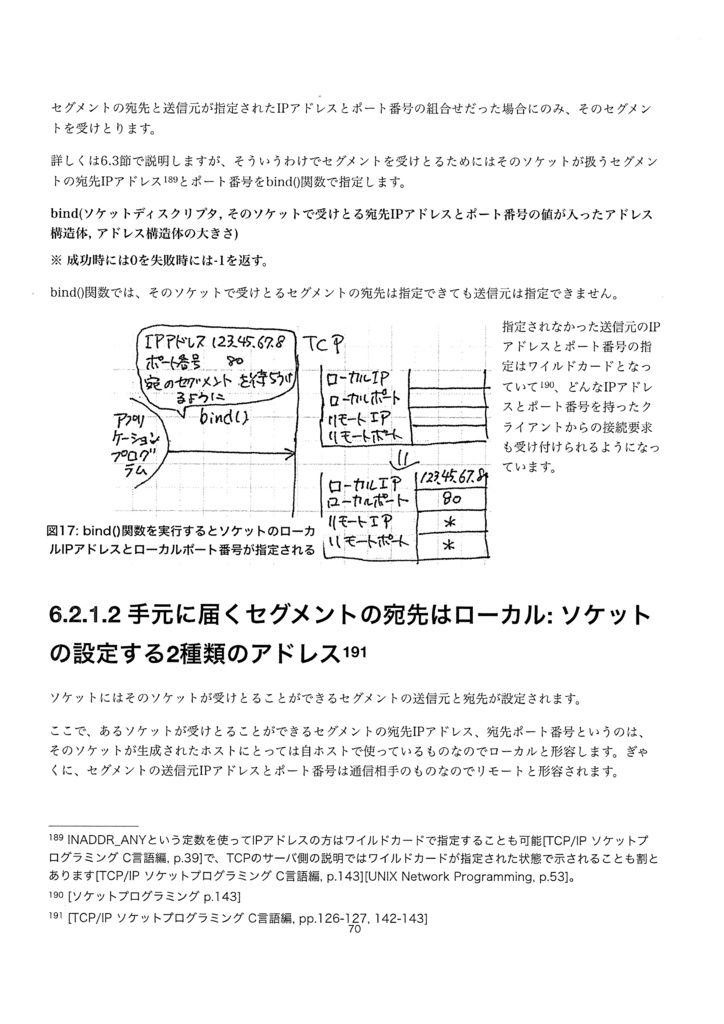 セグメントの宛先と送信元が指定されたIPアドレスとポート番号の組合せだった場合にのみ、そのセグメン
トを受けとります。
詳しくは6.3節で説明しますが、そういうわけでセグメントを受けとるためにはそのソケットが扱うセグメン
トの宛先IPアドレス189とポート番号をbind()関数で指定します。
bind(ソケットディスクリプタ, そのソケットで受けとる宛先IPアドレスとポート番号の値が入ったアドレス
構造体, アドレス構造体の大きさ)
※ 成功時には0を失敗時には-1を返す。
bind()関数では、そのソケットで受けとるセグメントの宛先は指定できても送信元は指定できません。
IPアドレス 123.45.67.8
ポート番号 80
宛のセグメントを待ちうけ
るように
bind()
アプリ
ケーション
プログ
ラム
TCP
ローカルIP
ローカルポート
リモートIP
リモートポート
ローカルIP 123.45.67.8
ローカルポート 80
リモートIP *
リモートポート *
図17: bind()関数を実行するとソケットのローカ
ルIPアドレスとローカルポート番号が指定される
指定されなかった送信元のIP
アドレスとポート番号の指
定はワイルドカードとなっ
ていて190、どんなIPアドレ
スとポート番号を持ったク
ライアントからの接続要求
も受け付けられるようになっ
ています。
6.2.1.2 手元に届くセグメントの宛先はローカル: ソケット
の設定する2種類のアドレス191
ソケットにはそのソケットが受けとることができるセグメントの送信元と宛先が設定されます。
ここで、あるソケットが受けとることができるセグメントの宛先IPアドレス、宛先ポート番号というのは、
そのソケットが生成されたホストにとっては自ホストで使っているものなのでローカルと形容します。ぎゃ
くに、セグメントの送信元IPアドレスとポート番号は通信相手のものなのでリモートと形容されます。
189 INADDR_ANYという定数を使ってIPアドレスの方はワイルドカードで指定することも可能[TCP/IP ソケットプ
ログラミング C言語編, p.39]で、TCPのサーバ側の説明ではワイルドカードが指定された状態で示されることも割と
あります[TCP/IP ソケットプログラミング C言語編, p.143][UNIX Network Programming, p.53]。
190 [ソケットプログラミング p.143]
191 [TCP/IP ソケットプログラミング C言語編, pp.126-127, 142-143]
70